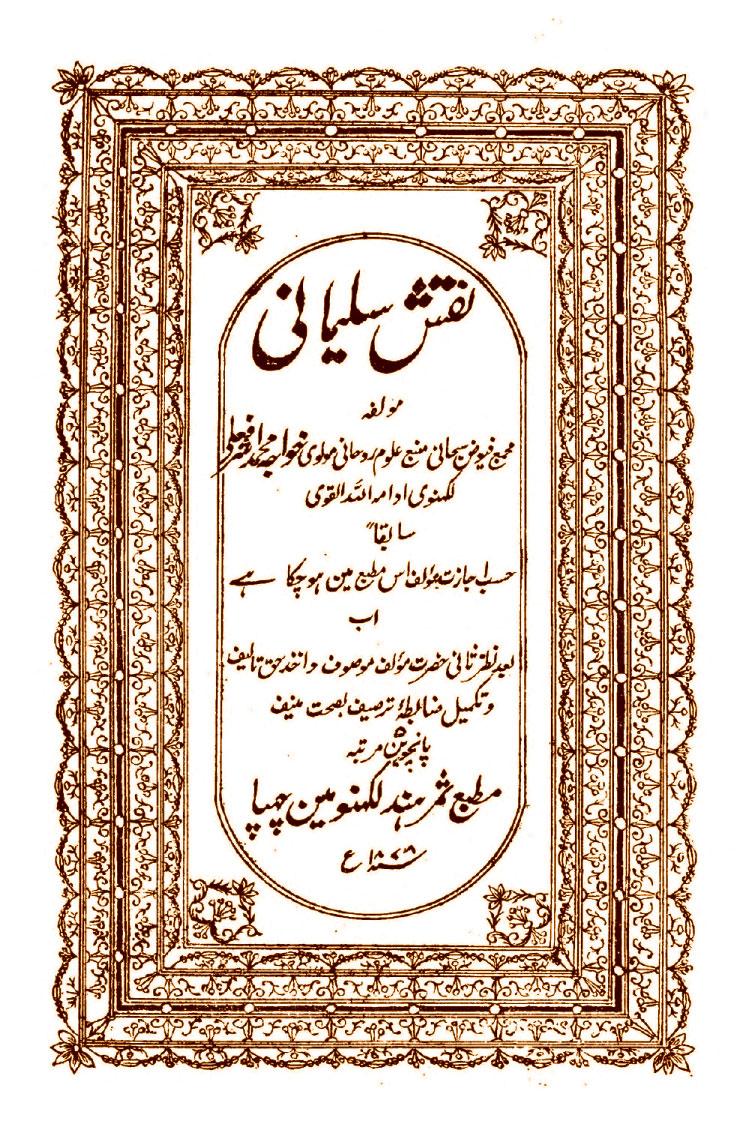 نقش سلیمانی
مولفہ
مجمع فیوض سبحانی منبع علوم روحانی مولوی خواجہ محمد اشرف علی
لکہنوی ادامہ اللہ القوی
سابقاً
حسب اجازت مؤلف اس مطبع مین ہو چکا ہے
اب
بعد نظر ثانی حضرت مؤلف موصوف و اخذ حق تالیف
و تکمیل ضابطۂ ترصیف بصحت منیف
پانچوین مرتبہ
مطبع ثمر ہند لکہنو مین چہپا
۱۸۷۸ع